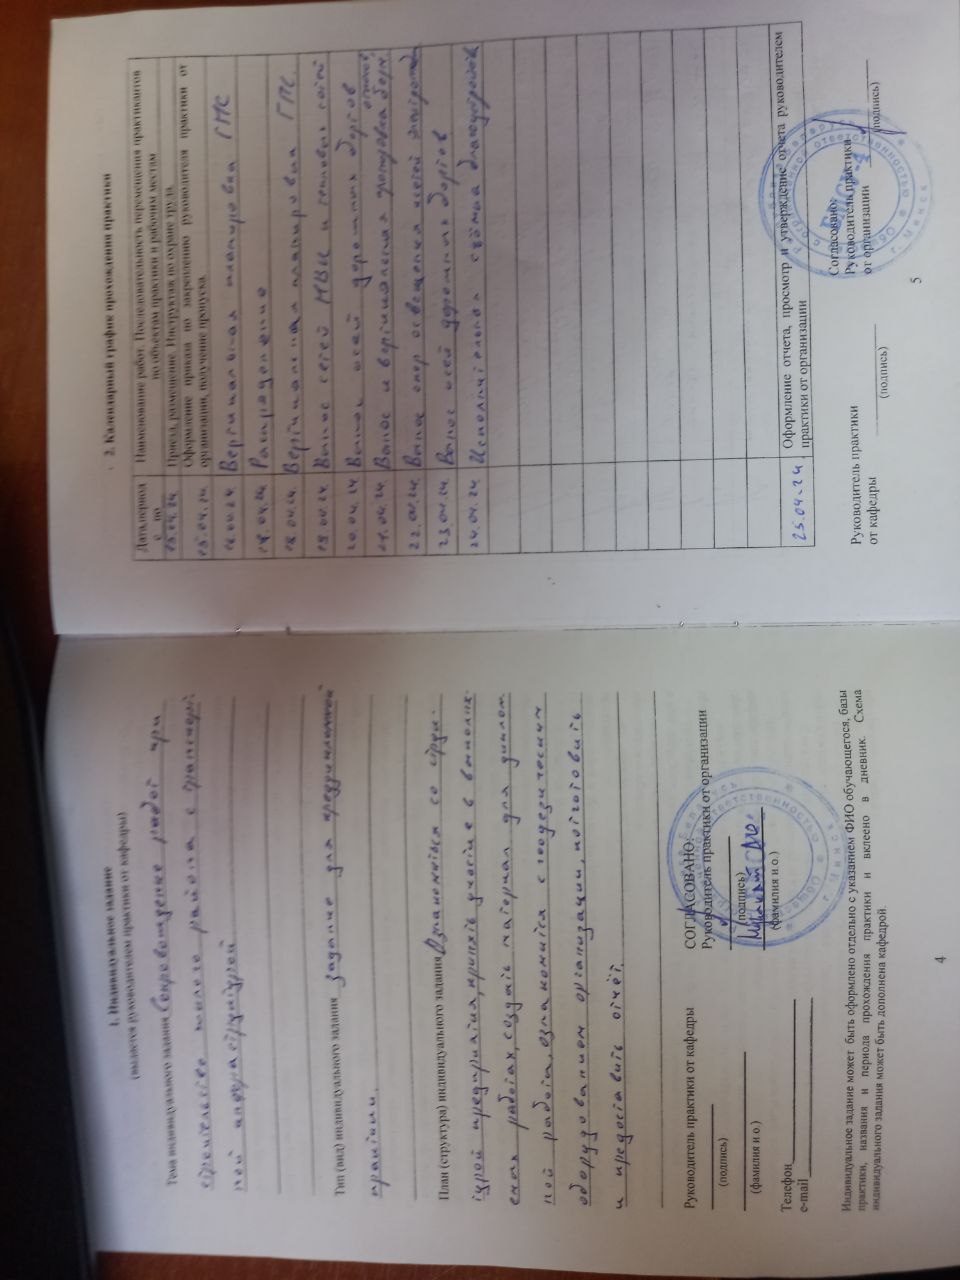 1. Индивидуальное задание
(выдается руководителем практики от кафедры)
Тема индивидуального задания Сопровождение работ при
строительстве жилого района с транспорт
ной инфраструктурой
Тип (вид) индивидуального задания задание для преддипломной
практики.
План (структура) индивидуального задания Ознакомиться со струк-
турой предприятия, принять участие в выполне-
емых работах, создать материал для диплом
ной работы, ознакомится с геодезическим
оборудованием организации, подготовить
и предоставить отчёт.
Руководитель практики от кафедры
(подпись)
(фамилия и.о.)
Телефон
e-mail
СОГЛАСОВАНО:
Руководитель практики от организации
(подпись)
(фамилия и.о.)
Индивидуальное задание может быть оформлено отдельно с указанием ФИО обучающегося, базы
практики, названия и периода прохождения практики и вклеено в дневник. Схема
индивидуального задания может быть дополнена кафедрой.
4
2. Календарный график прохождения практики
Дата/период
с по
Наименование работ. Последовательность перемещения практикантов
по объектам практики и рабочим местам
15.04.24. Приезд, размещение. Инструктаж по охране труда.
15.04.24. Оформление приказа по закреплению руководителя практики от
организации, получение пропуска.
16.04.24. Вертикальная планировка ГПС
17.04.24 Распределение
18.04.24. Вертикальная планировка ГПС.
19.04.24. Вынос сетей и тепловых сетей
20.04.24 Вынос осей дорожных бортов
21.04.24. Вынос и вертикальная
22.04.24. Вынос опор освещения сетей
23.04.24. Вынос осей дорожных бортов
24.04.24. Исполнительная съёмка благоустройства
25.04.24. Оформление отчета, просмотр и утверждение отчета руководителем
практики от организации
Руководитель практики
от кафедры
(подпись)
Согласовано:
Руководитель практики
от организации
(подпись)
г. Минск
5